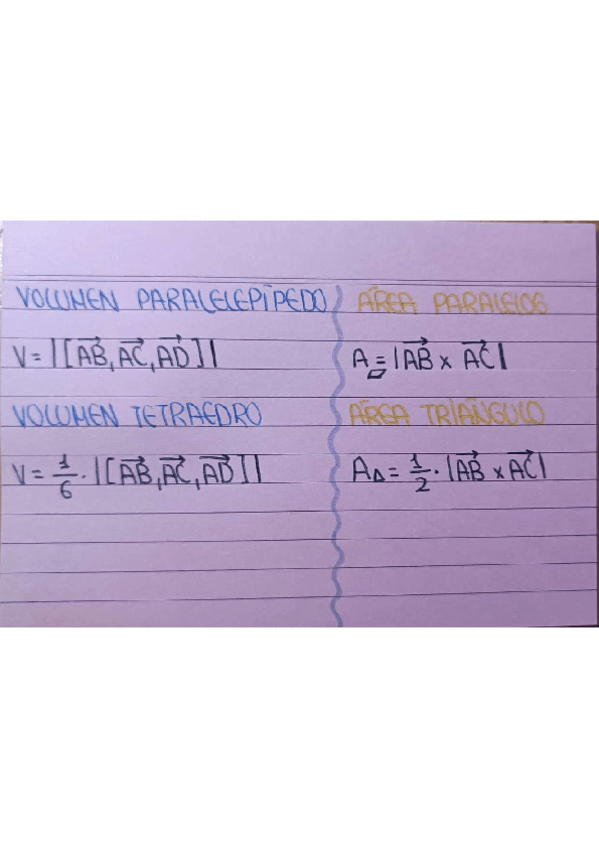 VOLUMEN PARALELEPÍPEDO
V = |[AB, AC, AD]|
VOLUMEN TETRAEDRO
V = 1/6 · |[AB, AC, AD]|
ÁREA PARALELOG
A▱ = |AB x AC|
ÁREA TRIÁNGULO
A△ = 1/2 · |AB x AC|